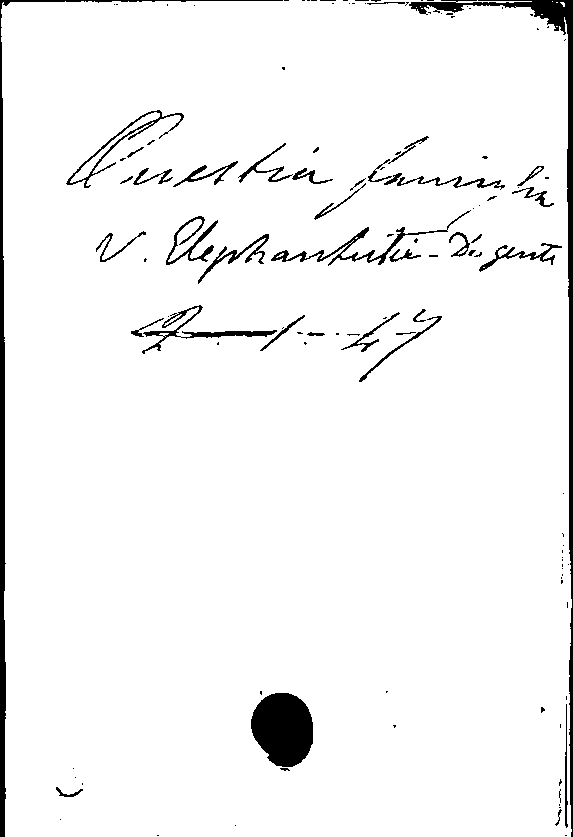 Questia famiglia
V. Elephantutii - De gente
Q 1 - 47